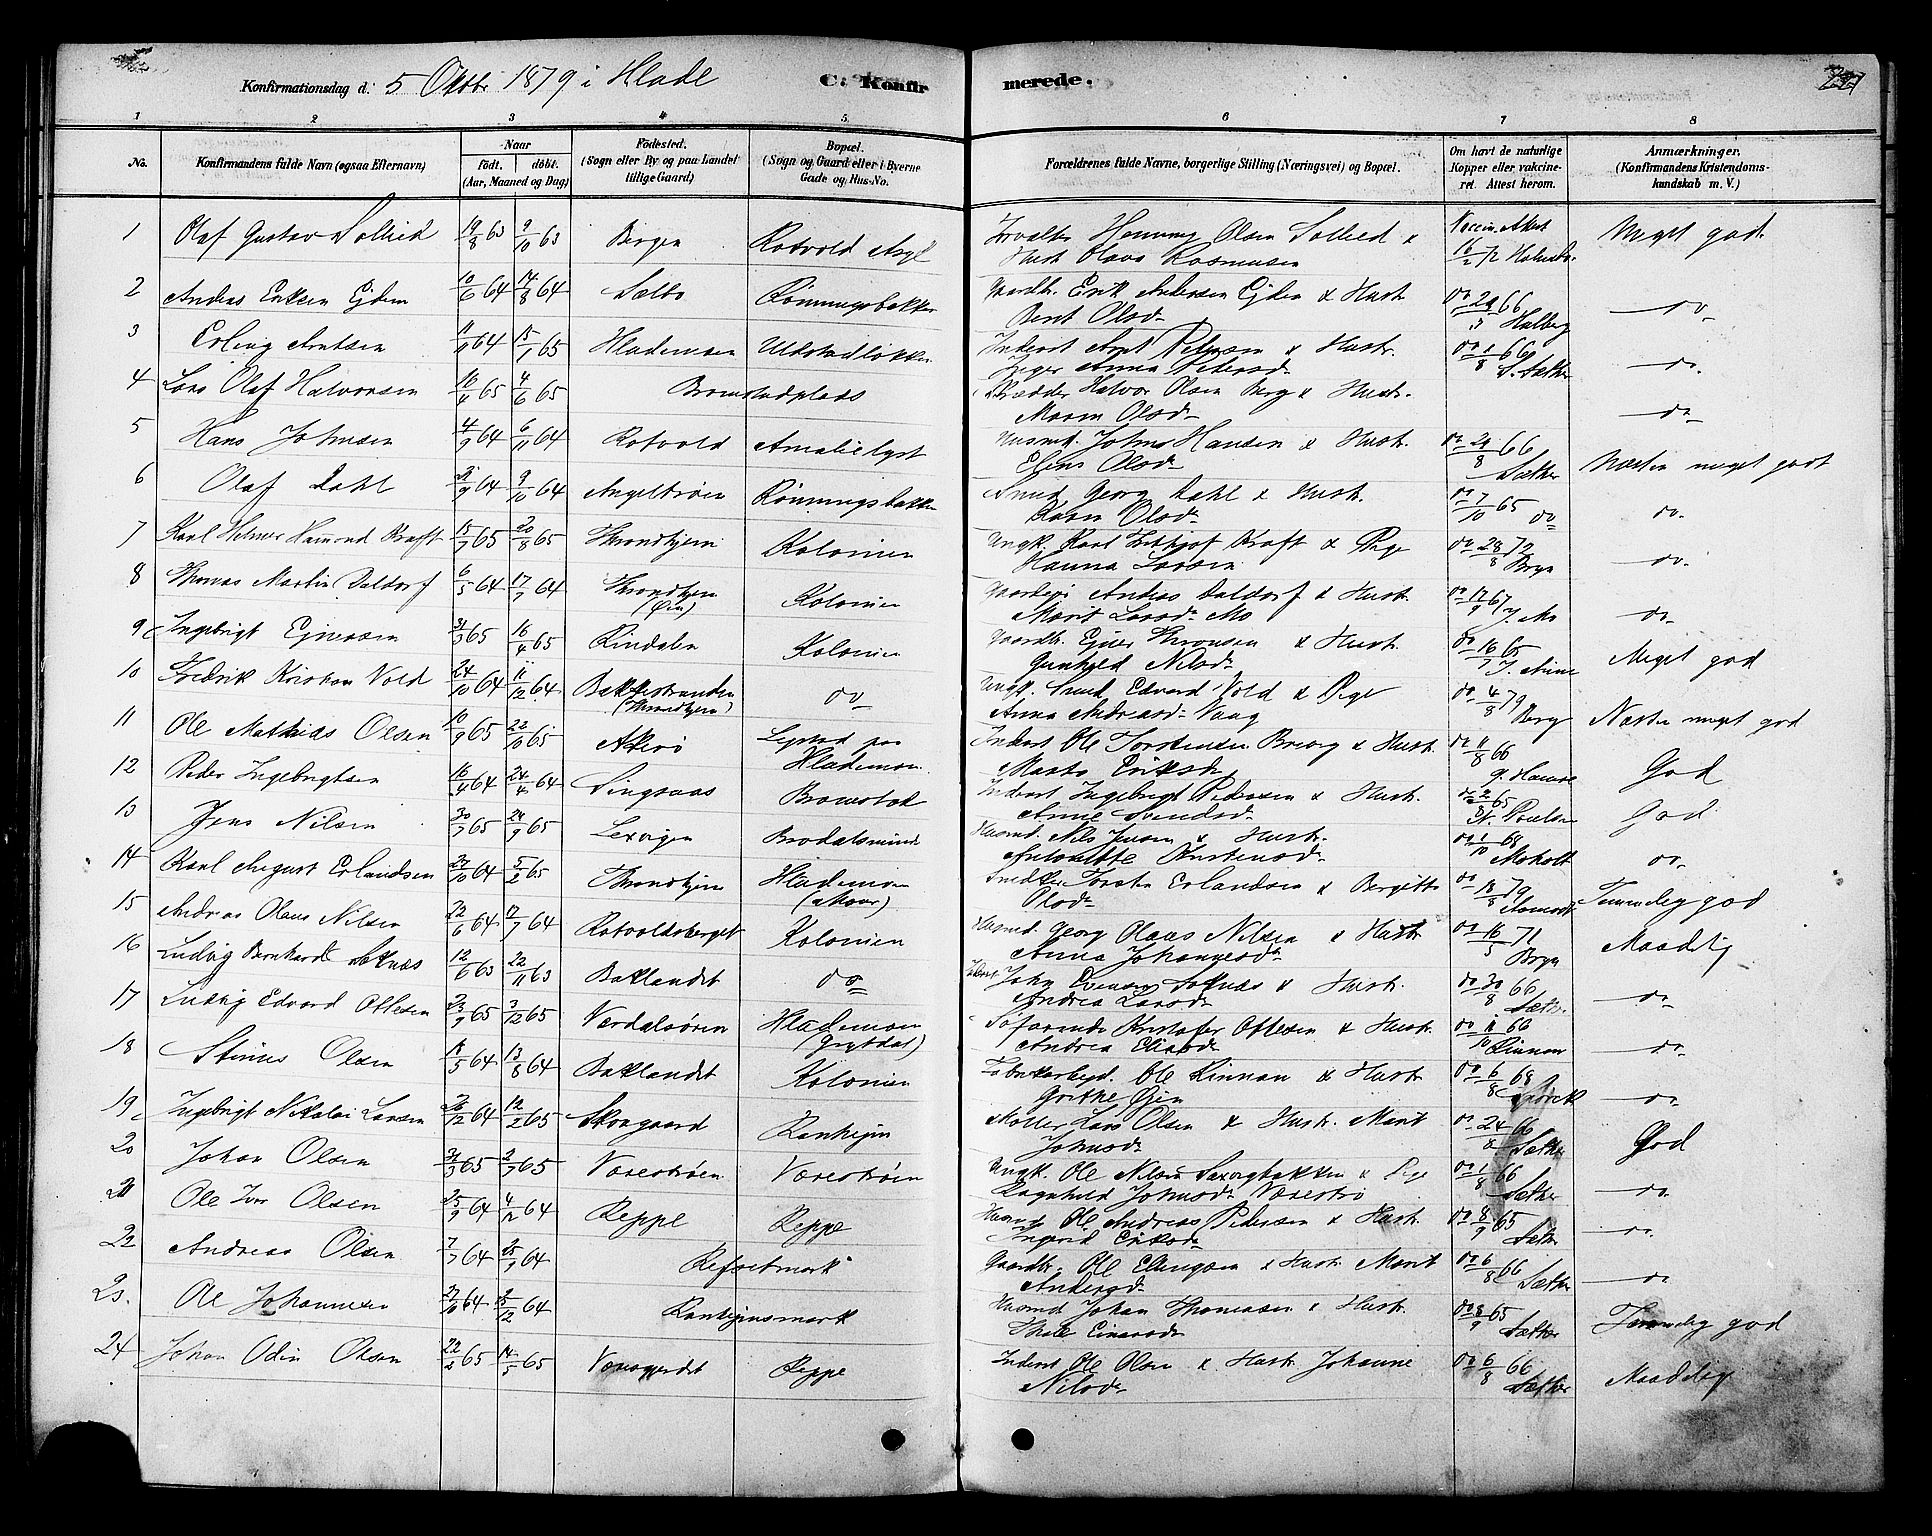 Konfirmationsdag d. 5 Oktbr 1879 i Hlade C. Konfirmerede. 227
1 2 3 4 5 6 7 8
No. Konfirmandens fulde Navn (ogsaa Efternavn) Naar født. døbt. (Aar, Maaned og Dag) Fødested. (Sogn eller By og paa Landet tillige Gaard) Bopæl. (Sogn og Gaard eller i Byerne Gade og Hus-No. Forældrenes fulde Navne, borgerlige Stilling (Næringsvei) og Bopæl. Om havt de naturlige Kopper eller vakcineret. Attest herom. Anmærkninger. (Konfirmandens Kristendomskundskab m. V.)
1 Olaf Gustav Sollied 19/8 63 9/10 63 Bergen Rotvold Asyl Forvalter Henning Olsen Sollied & Hust. Olava Rasmusen Vaccin. Attest 16/2 72 Meget god
2 Andreas Eriksen Ejdem 10/6 64 14/8 64 Sælbo Rønningsbakken Gaardbr. Erik Andersen Ejdem & Hustr. Berit Olsd. do 66 Halberg do
3 Erling Arntsen 64 15/1 65 Hlademoen Inderst Arnt Petersen & Hustr. Anna Petersd. do 1/8 66 S. Sæther do
4 Lars Olaf Halvorsen 16/4 65 4/6 65 Bromstadplads Skrædder Halvor Olsen Berg & Hustr. Maren Olsd. do
5 Hans Johnsen 4/9 64 6/11 64 Rotvold Amalielyst Husmd. John Hansen & Hustr. Elens Olsd. do 66 Sæther Næsten meget godt
6 Olaf Dahl 64 9/10 64 Angeltrøen Rønningsbakken Smed Georg Dahl & Hustr. Karen Olsd. do 7/10 65 do do
7 Karl Helmer Hammond Kraft 15/7 65 20/8 65 Throndhjem Kolonien Ungk. Karl Frithjof Kraft & Pige Hanna Larsen do 28/8 72 Bryn do
8 Thomas Martin Daldorf 6/5 64 17/7 64 Throndhjem Kolonien Andreas Daldorf & Hustr. Marit Larsd. Mo do 12/9 67 J. Mo do
9 Ingebrigt Ejnersen 31/3 65 16/4 65 Rindalen Kolonien Gaardbr. Ejner Thronsen & Hustr. Gunhild Nilsd. do 16/7 65 Meget god
10 Fredrik Kristian Vold 24/10 64 11/12 64 Bakkestranden (Throndhjem) do Ungk. Smed Edvard Vold & Pige Anna Andreasd. Vaag do 4/8 79 Berg Næsten meget god
11 Ole Mathias Olsen 10/9 65 22/10 65 Akerø paa Hlademoen Inderst Ole Torstensen & Hustr. Marta Eriksd. do 11/8 66 God
12 Peder Ingebrigtsen 16/4 64 24/4 64 Singsaas Bromstad Inderst Ingebrigt Pedersen & Hustr. Anne Svendsd. do 65 N. Poulsen God
13 Jens Nilsen 30/7 65 24/9 65 Lexvigen Brodalsminde Husmd. Nils Jensen & Hustr. Antonette do 1/10 68 Moholt do
14 Karl August Erlandsen 27/10 64 5/2 65 Throndhjem Hlademoen Snedker Torsten Erlandsen & Bergitta Olsd. do 18/8 79 Temmelig god
15 Andreas Olaus Nilsen 22/6 64 17/7 64 Rotvoldsberget Kolonien Husmd. Georg Olaus Nilsen & Hustr. Anna Johannesd. do 16/5 71 Bryn Maadelig
16 Ludvig Bernhard Seknæs 12/6 63 22/11 63 Baklandet do Inderst John Evensen Seknæs & Hustr. Andrea Larsd. do 30/8 66 Sæth. do
17 Ludvig Edvard Ottesen 23/9 65 3/12 65 Værdalsøren Hlademoen Søfarende Kristofer Ottesen & Hustr. Andrea Eliasd. do 11/10 66 Rinnan do
18 Stinius Olsen 5 64 13/8 64 Baklandet Kolonien Fabrikarbejd. Ole Rinnan & Hustr. Grethe do 6/8 68 do
19 Ingebrigt Nikolai Larsen 26/12 64 12/2 65 Skovgaard Ranhejm Møller Lars Olsen & Hustr. Marit Johnsd. do 24/8 66 Sæther God
20 Johan Olsen 31/3 65 2/7 65 Værestrøen Værestrøen Ungk. Ole Nilsen & Pige Ragnhild Johnsd. Værestrø do 1/8 66 Sæther do
21 Ole Iver Olsen 25/9 64 4/12 64 Reppe Reppe Husmd. Ole Andreas Pedersen & Hustr. Ingerid Eriksd. do 8/9 65 Sæther do
22 Andreas Olsen 7/7 64 64 Refsetmark Gaardbr. Ole Ellingsen & Hustr. Marit Andersd. do 6/8 66 Sæther do
23. Ole Johannesen 27/10 64 12 64 Ranhejmsmark Husmd. Johan Thomasen & Hustr. Einarsd. do 8/9 65 Sæther Temmelig god
24 Johan Odin Olsen 22/2 65 14/5 65 Reppe Inderst Ole Olsen & Hustr. Johanne Nilsd. do 6/8 66 Sæther Maadelig